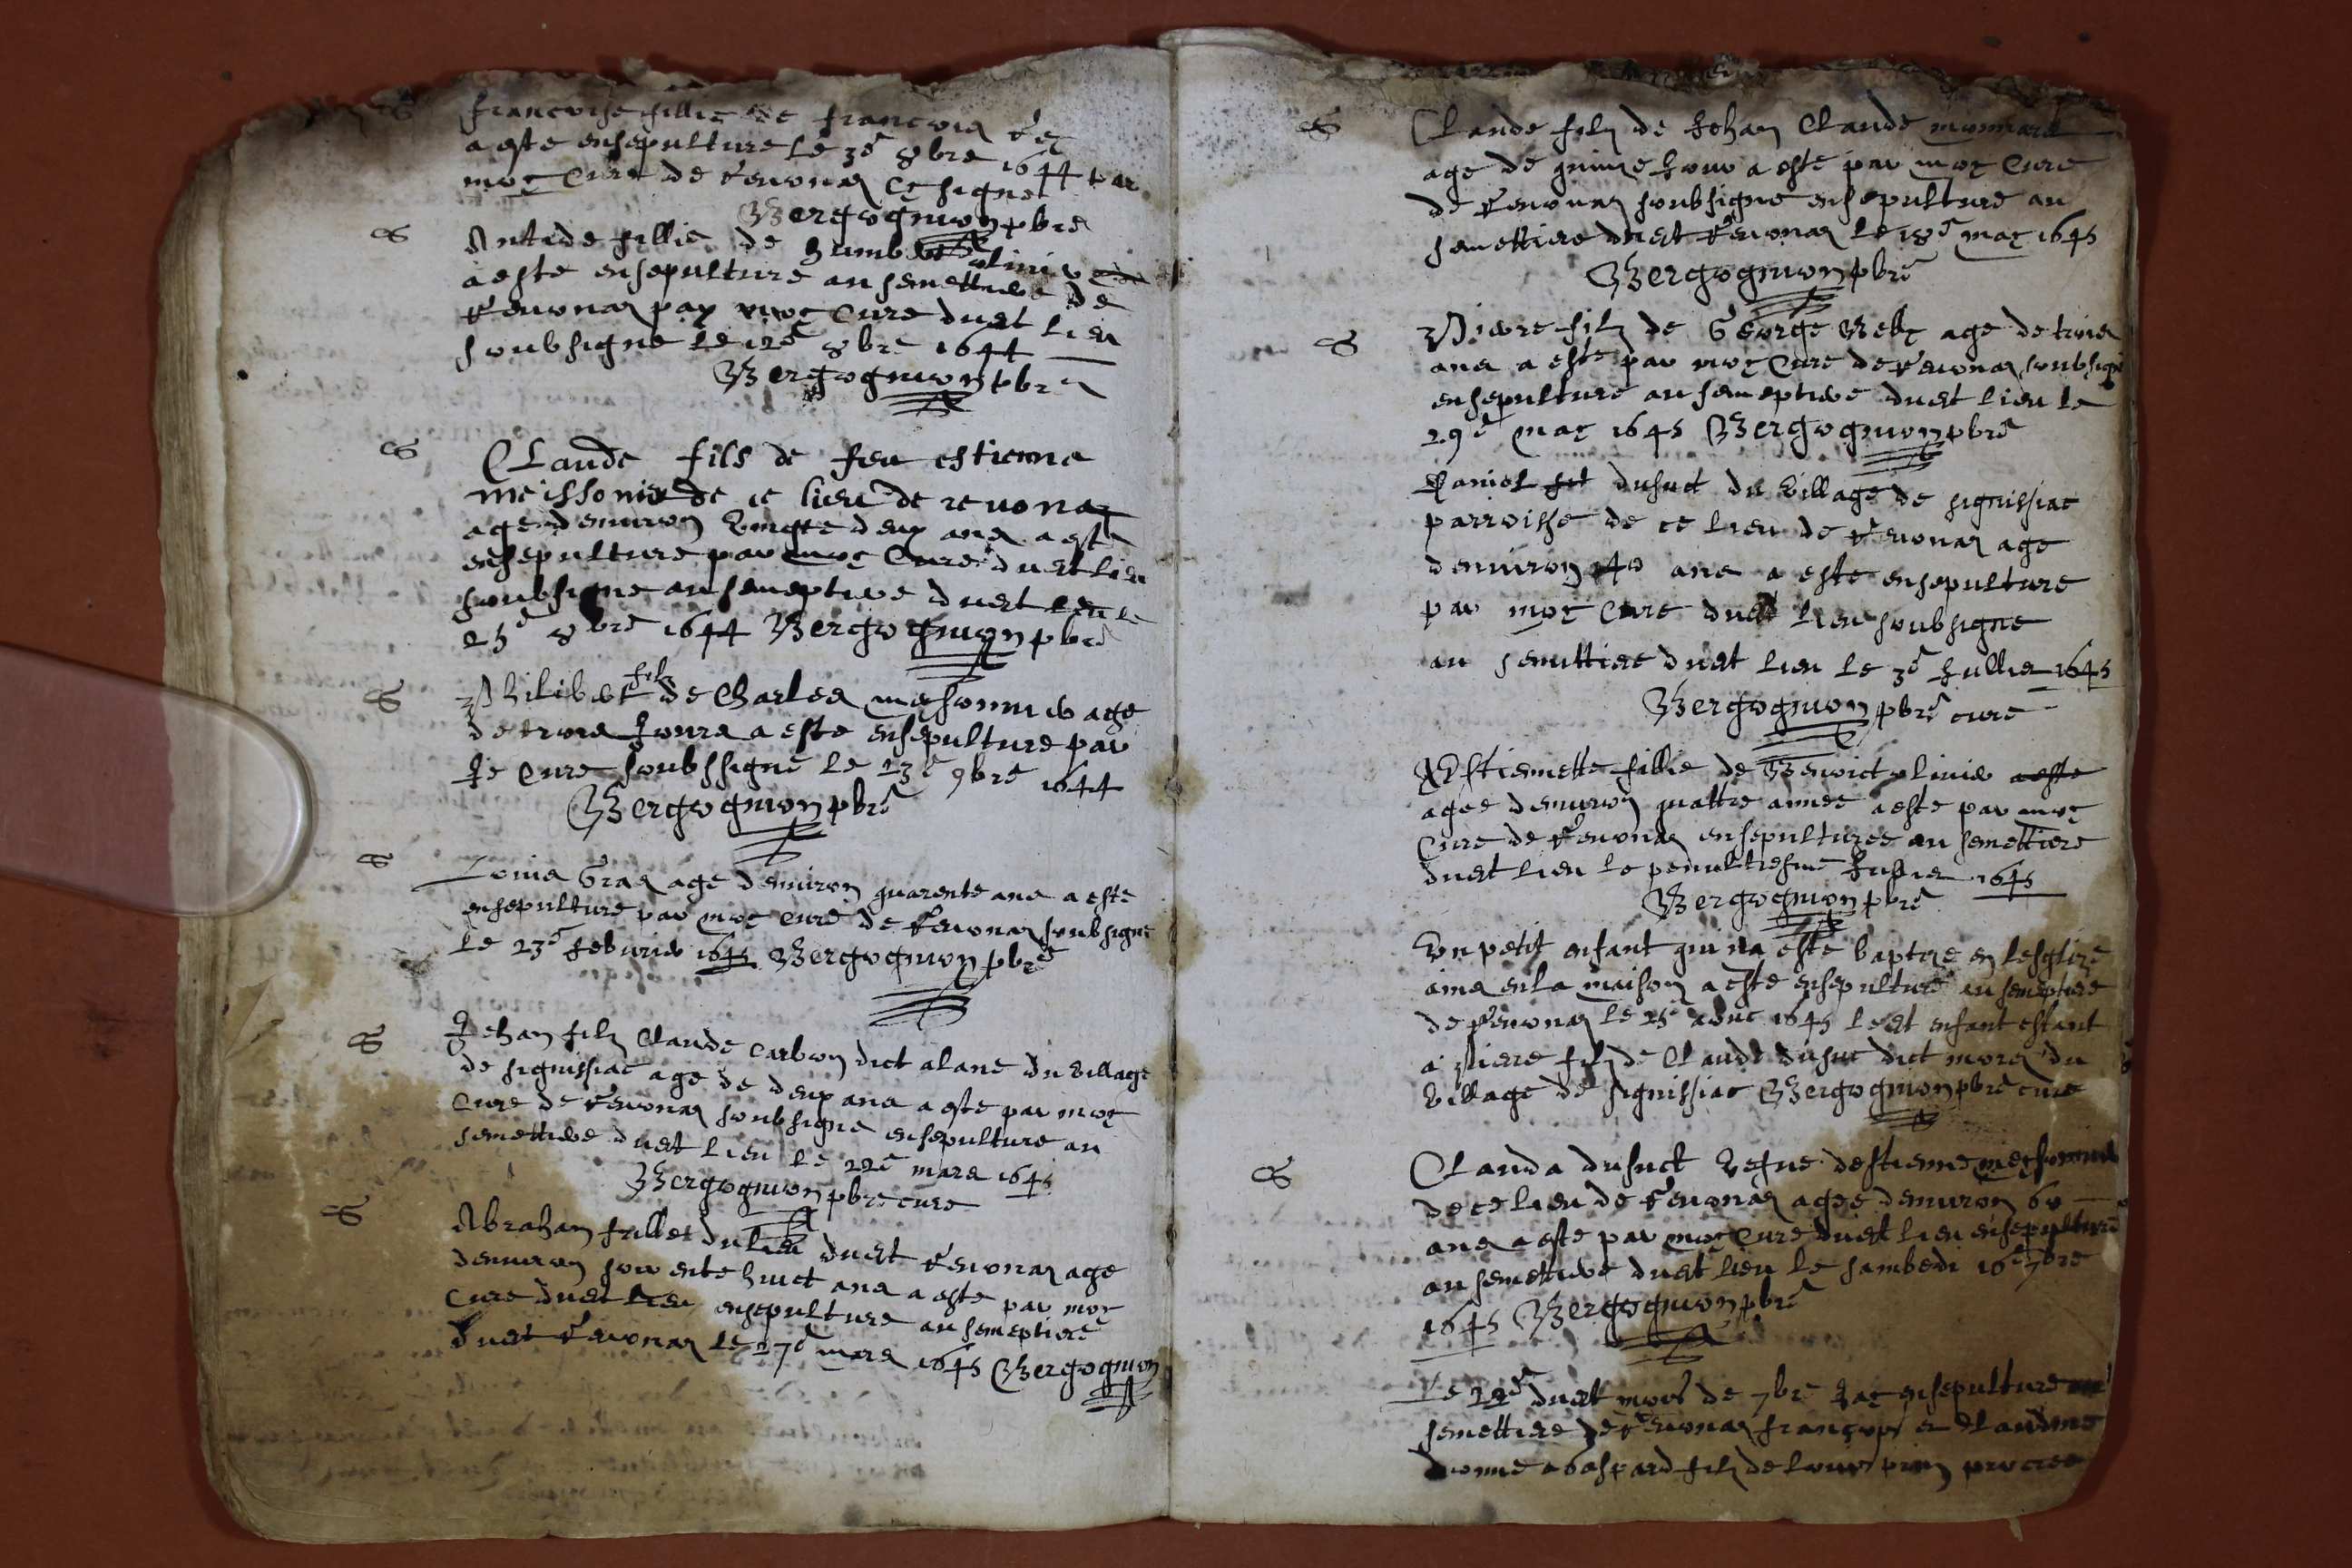 S
francoise fillie de francois Rey
a este ensepulture le 3e 8bre 1644 par
moy Cure de Revonas Cy signe
Bergognion pbre
S
Antide fillie de humbert olinier
a este ensepulture au semettiere de
Revonas par moy Cure dudt lieu
soubsigne le 12e 8bre 1644
Bergognion pbre
S
Claude fils de feu estienne
meissonier de ce lieu de revonas
age denviron vingte deux ans a este
ensepulture par moy Cure dudt lieu
soubsigne au semeptiere dudt lieu le
25e 8bre 1644 Bergognion pbre
S
Philibert filz de Charles messonnier age
de trois jours a este ensepulture par
je Cure soubssigne le 23e 9bre 1644
Bergognion pbre
S
Louis Gras age denviron quarente ans a este
ensepulture par moy cure de Revonas soubsigne
le 23e febvrier 1645 Bergognion pbre
S
Jehan filz Claude Carbon dict alane du village
de signissiac age de deux ans a este par moy
Cure de Revonas soubsigne ensepulture au
semettiere dudt lieu le 22e mars 1645
Bergognion pbre cure
S
Abraham fullet du lieu dudt Revonas age
denviron soixente huict ans a este par moy
Cure dudt lieu ensepulture au semeptiere
dudt Revonas le 27e mars 1645 Bergognion
S
Claude filz de Jehan Claude monnard
age de quinze jour a este par moy Cure
de Revonas soubsigne ensepulture au
semettiere dudt Revonas le 18e may 1645
Bergognion pbre
S
Pierre filz de George Rey age de trois
ans a este par moy Cure de Revonas soubsigne
ensepulture au semeptiere dudt lieu le
29e may 1645 Bergognion pbre
Daniel fit dusuct du village de signissiac
parroisse de ce lieu de Revonas age
denviron 40 ans a este ensepulture
par moy Cure dudt lieu soubsigne
au semittiere dudt lieu le 3e Jullie 1645
Bergognion pbre cure
Estiennette fillie de Benoict olinier a este
agee denviron quattre annee a este par moy
Cure de Revonas ensepulturee au semettiere
dudt lieu le penultiesme Jullie 1645
Bergognion pbre
Un petit enfant qui na este baptize en lesglize
ains en la maison a este ensepulture au semeptiere
de Revonas le 25e aout 1645 ledt enfant estant
a piere filz de Claude dusuc dict mores du
village de signissiac Bergognion pbre cure
S
Clauda dusuct vefue destienne meyssonnier
de ce lieu de Revonas agee denviron 60
ans a este par moy Cure dudt lieu ensepulture
au semettiere dudt lieu le sambedi 16e 7bre
1645 Bergognion pbre
Le 22e dudt mois de 7bre Jay ensepulture au
semettiere de Revonas françoys et Claudine
donne a Gaspard filz de Louis procree